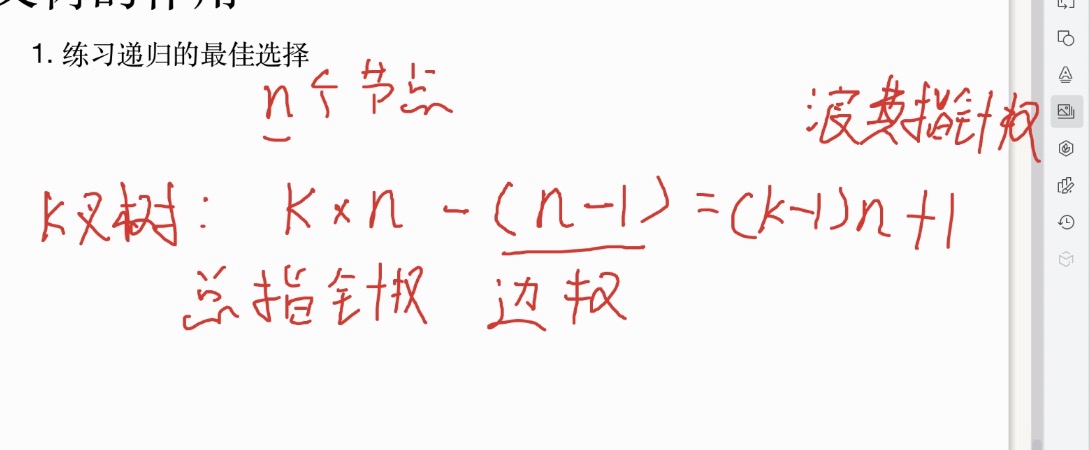 1. 练习递归的最佳选择
n个节点
浪费指针权
K叉树: K×n -(n-1)=(k-1)n+1
总指针权 边权